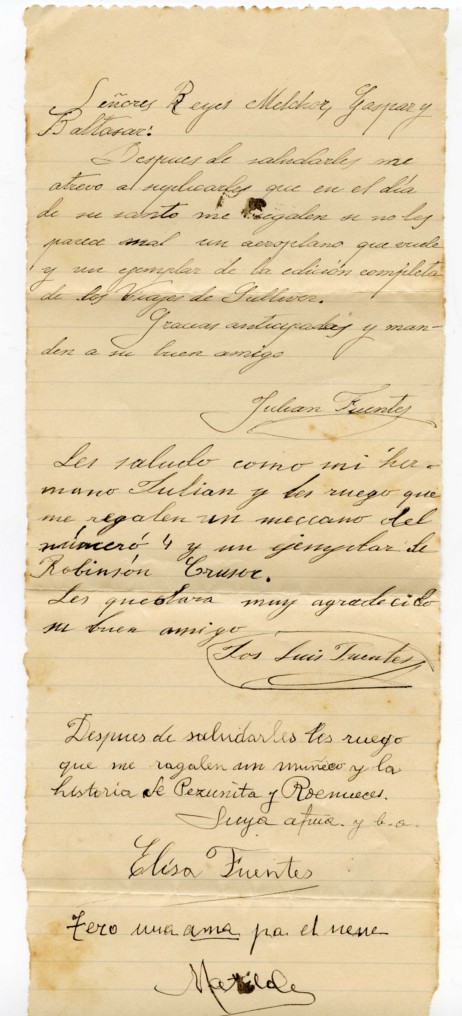 Señores Reyes Melchor, Gaspar y
Baltasar:
Despues de saludarles me
atrevo a suplicarles que en el día
de su santo me regalen si no les
parece mal un aeroplano que vuele
y un ejemplar de la edición completa
de los Viajes de Gulliver.
Gracias anticipadas y man-
den a su buen amigo
Julian Fuentes
Les saludo como mi her-
mano Julian y les ruego que
me regalen un meccano del
número 4 y un ejemplar de
Robinsón Crusoe.
Les quedara muy agradecido
su buen amigo
Jos Luis Fuentes
Despues de saludarles les ruego
que me ragalen un muñeco y la
historia de Pezunita y
Suya afma. y b.a.
Elisa Fuentes
una ama pa el nene
Matilde